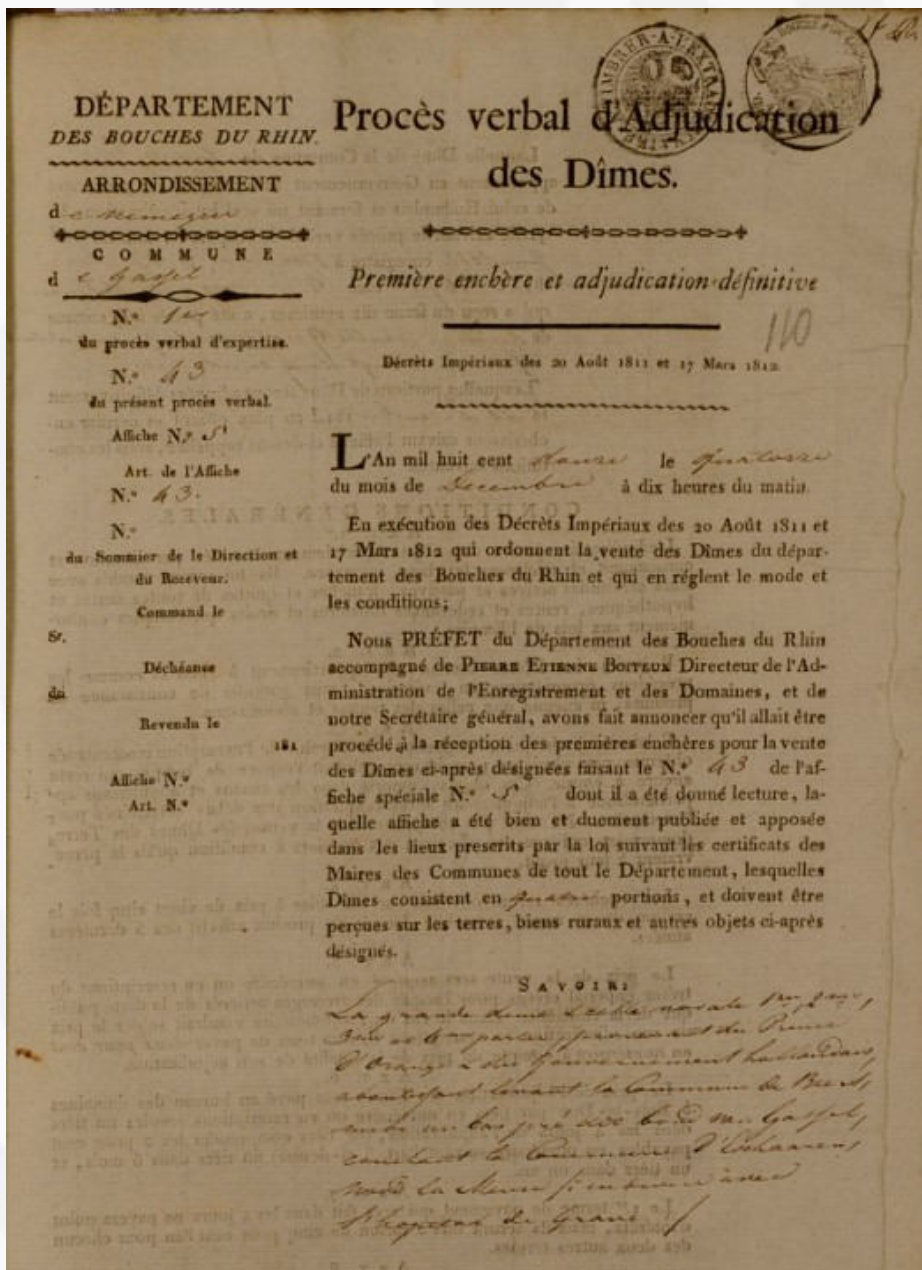 DÉPARTEMENT
DES BOUCHES DU RHIN.
ARRONDISSEMENT
de
COMMUNE
de Gassel
N.º 1er
du procès verbal d'expertise.
N.º 43
du présent procès verbal.
Affiche N.º 5
Art. de l'Affiche
N.º 43.
N.º
du Sommier de le Direction et
du Receveur.
Command le
Sr.
Déchéance
du
Revendu le
181
Affiche N.º
Art. N.º
TIMBRER-A-L'EXTRAORDINAIRE
Procès verbal d'Adjudication
des Dîmes.
Première enchère et adjudication définitive
110
Décrèts Impériaux des 20 Août 1811 et 17 Mars 1812.
L'An mil huit cent douze le quatorze
du mois de Decembre à dix heures du matin.
En exécution des Décrèts Impériaux des 20 Août 1811 et
17 Mars 1812 qui ordonnent la vente des Dîmes du dépar-
tement des Bouches du Rhin et qui en réglent le mode et
les conditions;
Nous PRÉFET du Département des Bouches du Rhin
accompagné de PIERRE ETIENNE BOITEUX Directeur de l'Ad-
ministration de l'Enregistrement et des Domaines, et de
notre Secrétaire général, avons fait annoncer qu'il allait être
procédé à la réception des premières enchères pour la vente
des Dîmes ci-après désignées faisant le N.º 43 de l'af-
fiche spéciale N.º 5 dont il a été donné lecture, la-
quelle affiche a été bien et duement publiée et apposée
dans les lieux prescrits par la loi suivant les certificats des
Maires des Communes de tout le Département, lesquelles
Dîmes consistent en quatre portions, et doivent être
perçues sur les terres, biens ruraux et autres objets ci-après
désignés.
SAVOIR:
La grande dime 1er, 2me,
3me et 4me partie, provenant du Prince
d'Orange & du Gouvernement hollandais,
levant la Commune de
midi un bas pré dit van Gassel,
couchant la Commune d'Escharen,
nord la Meuse
l'hopital de Grave